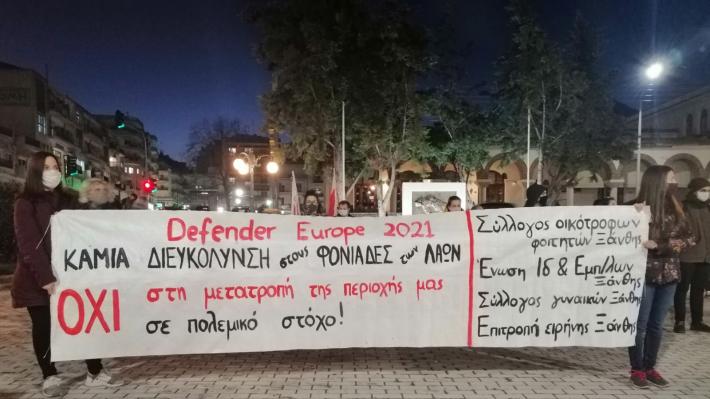 Defender Europe 2021
ΚΑΜΙΑ ΔΙΕΥΚΟΛΥΝΣΗ στους ΦΟΝΙΑΔΕΣ των ΛΑΩΝ
ΟΧΙ στη μετατροπή της περιοχής μας
σε πολεμικό στόχο!
Σύλλογος οικότροφων
φοιτητών Ξάνθης
Ένωση Ιδ & Εμπ/λων
Ξάνθης
Σύλλογος γυναικών Ξάνθης
Επιτροπή ειρήνης Ξάνθης